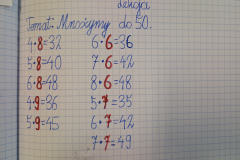 Lekcja
Temat: Mnożymy do 50.
4·8=32 6·6=36
5·8=40 7·6=42
6·8=48 8·6=48
4·9=36 5·7=35
5·9=45 6·7=42
7·7=49